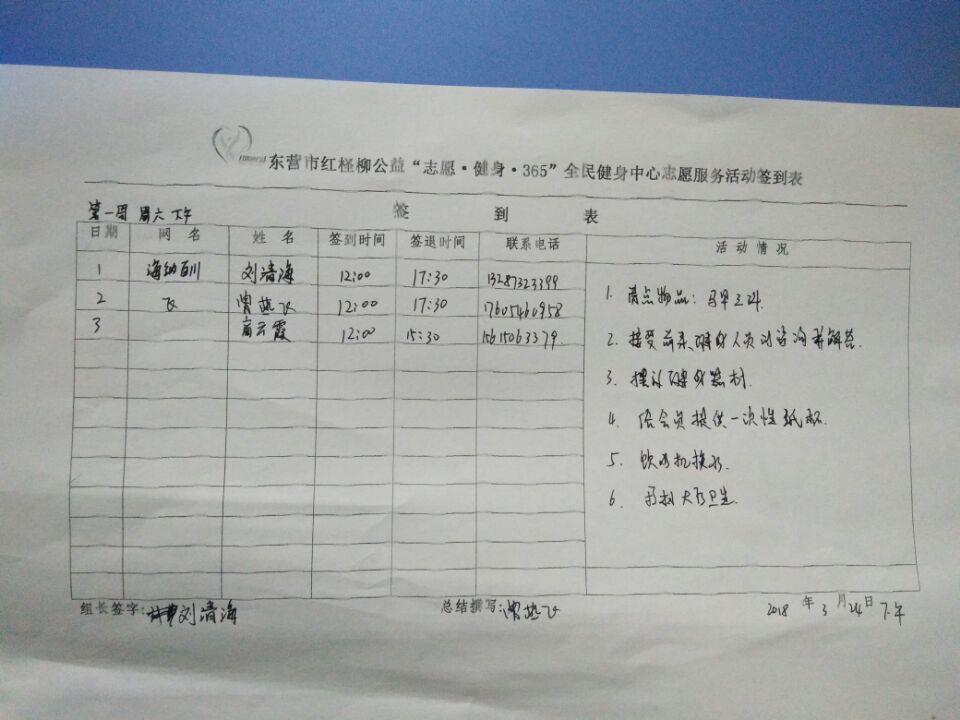 东营市红柽柳公益“志愿·健身·365”全民健身中心志愿服务活动签到表
第一周 周六 下午
签 到 表
日期 网名 姓名 签到时间 签退时间 联系电话 活动情况
1 海纳百川 刘清海 12:00 17:30 13287323399
2 飞 曾燕飞 12:00 17:30 17605460958
3 扈云霞 12:00 15:30 15615063379.
1. 清点物品:
2. 接受前来健身人员的咨询并解答.
3. 摆放健身器材.
4. 给会员提供一次性纸杯.
5. 饮水机换水.
6. 打扫大厅卫生.
组长签字: 刘清海
总结撰写: 曾燕飞
2018 年 3 月 24 日 下午